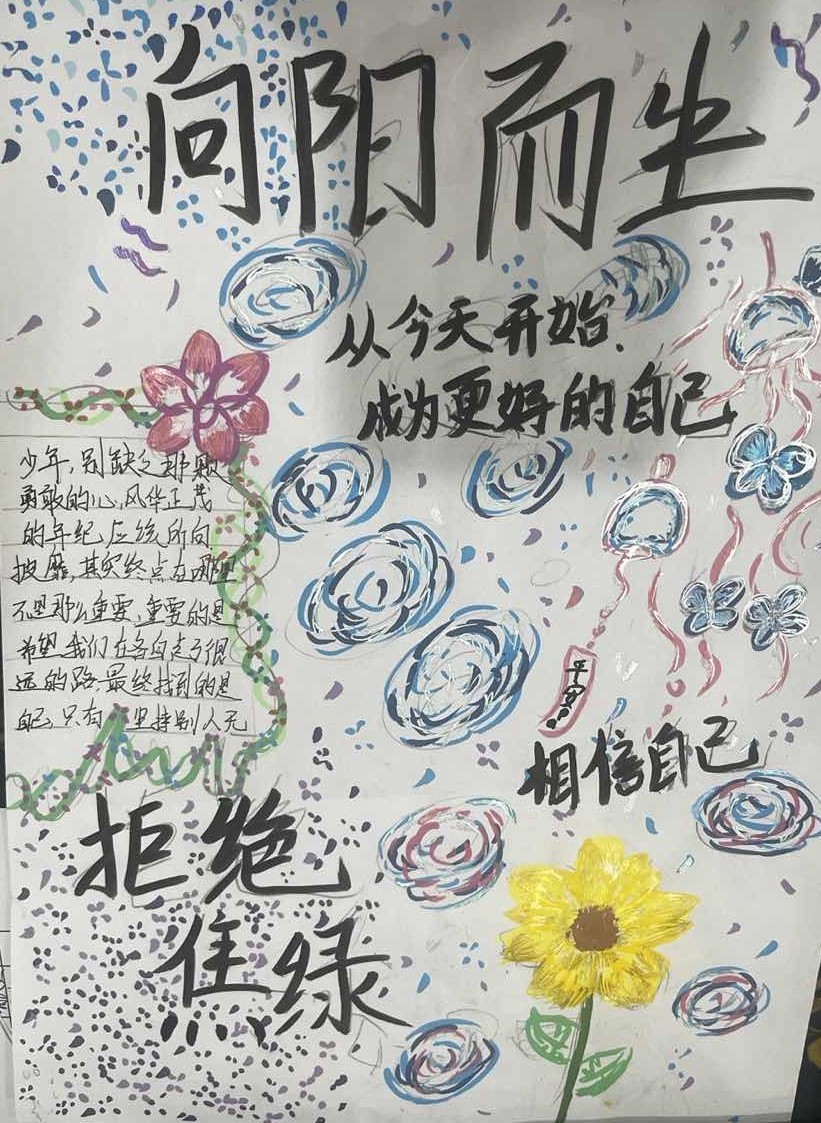 向阳而生
从今天开始,
成为更好的自己
少年,别缺乏那颗
勇敢的心,风华正茂
的年纪应 所向
披靡,其实终点在哪里
不是那么重要,重要的是
希望我们在各自走了很
远的路,最终找到的是
自己,只有 别人无
平安
相信自己
拒绝
焦绿